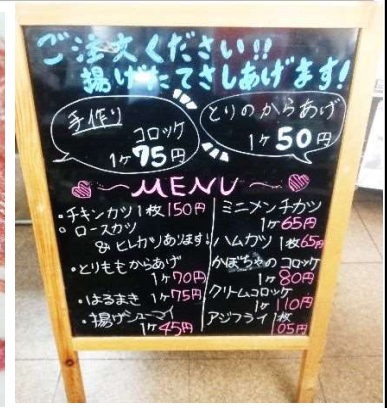 ご注文ください!!
揚げたてさしあげます!
手作り
コロッケ
1ヶ75円
とりのからあげ
1ヶ50円
MENU
・チキンカツ1枚150円
・ロースカツ
& ヒレカツあります!
・とりももからあげ
1ヶ70円
・はるまき 1ヶ75円
・揚げシューマイ
1ヶ45円
ミニメンチカツ
1ヶ65円
ハムカツ 1枚65円
かぼちゃのコロッケ
1ヶ80円
クリームコロッケ
1ヶ110円
アジフライ1枚
05円